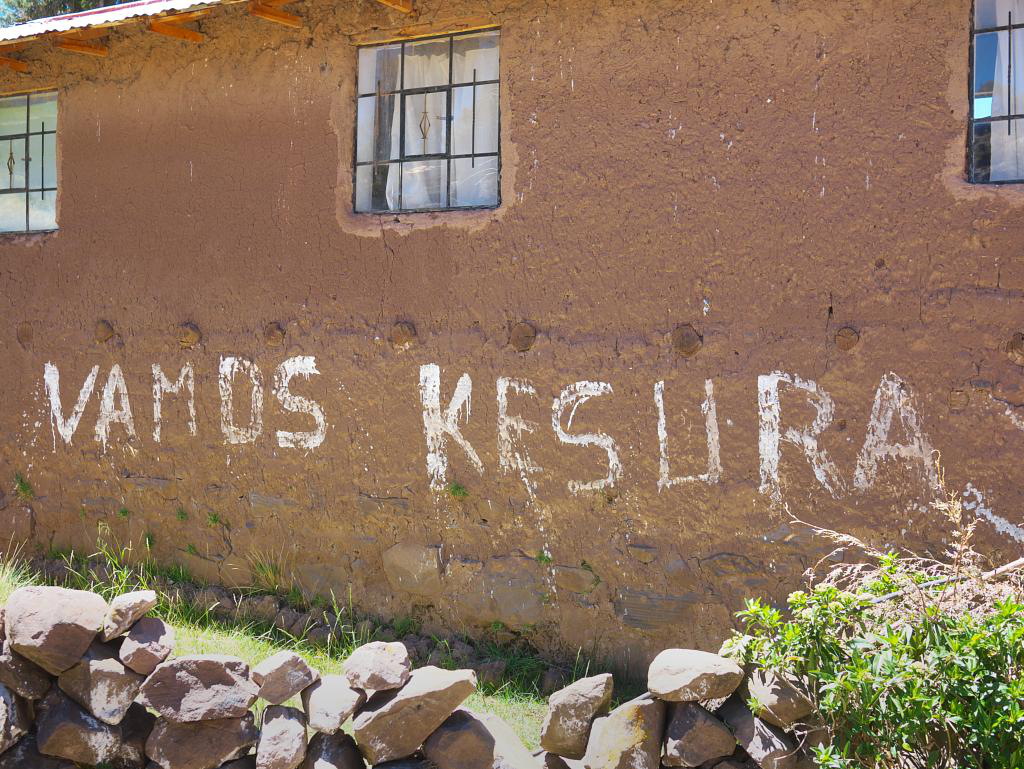 VAMOS KESURA